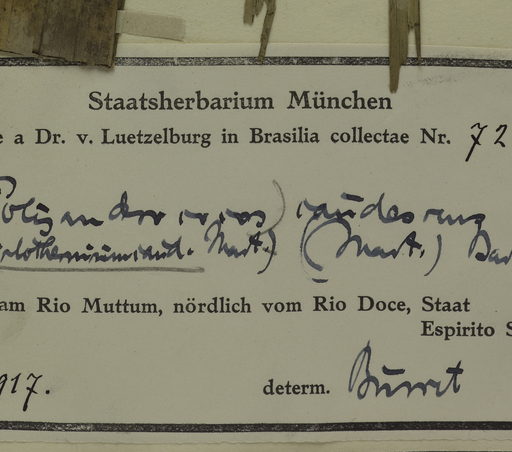 Staatsherbarium München
e a Dr. v. Luetzelburg in Brasilia collectae Nr. 72
caudescens
Mart.) (Mart.)
am Rio Muttum, nördlich vom Rio Doce, Staat
Espirito S
917.
determ. Burret